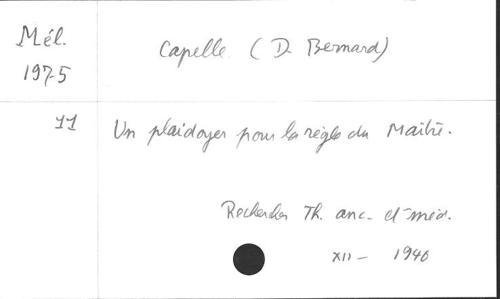 Mél.
1975
Capelle (D. Bernard)
11
Un plaidoyer pour la règle du Maître.
Recherches Th. anc. et méd.
XII - 1940